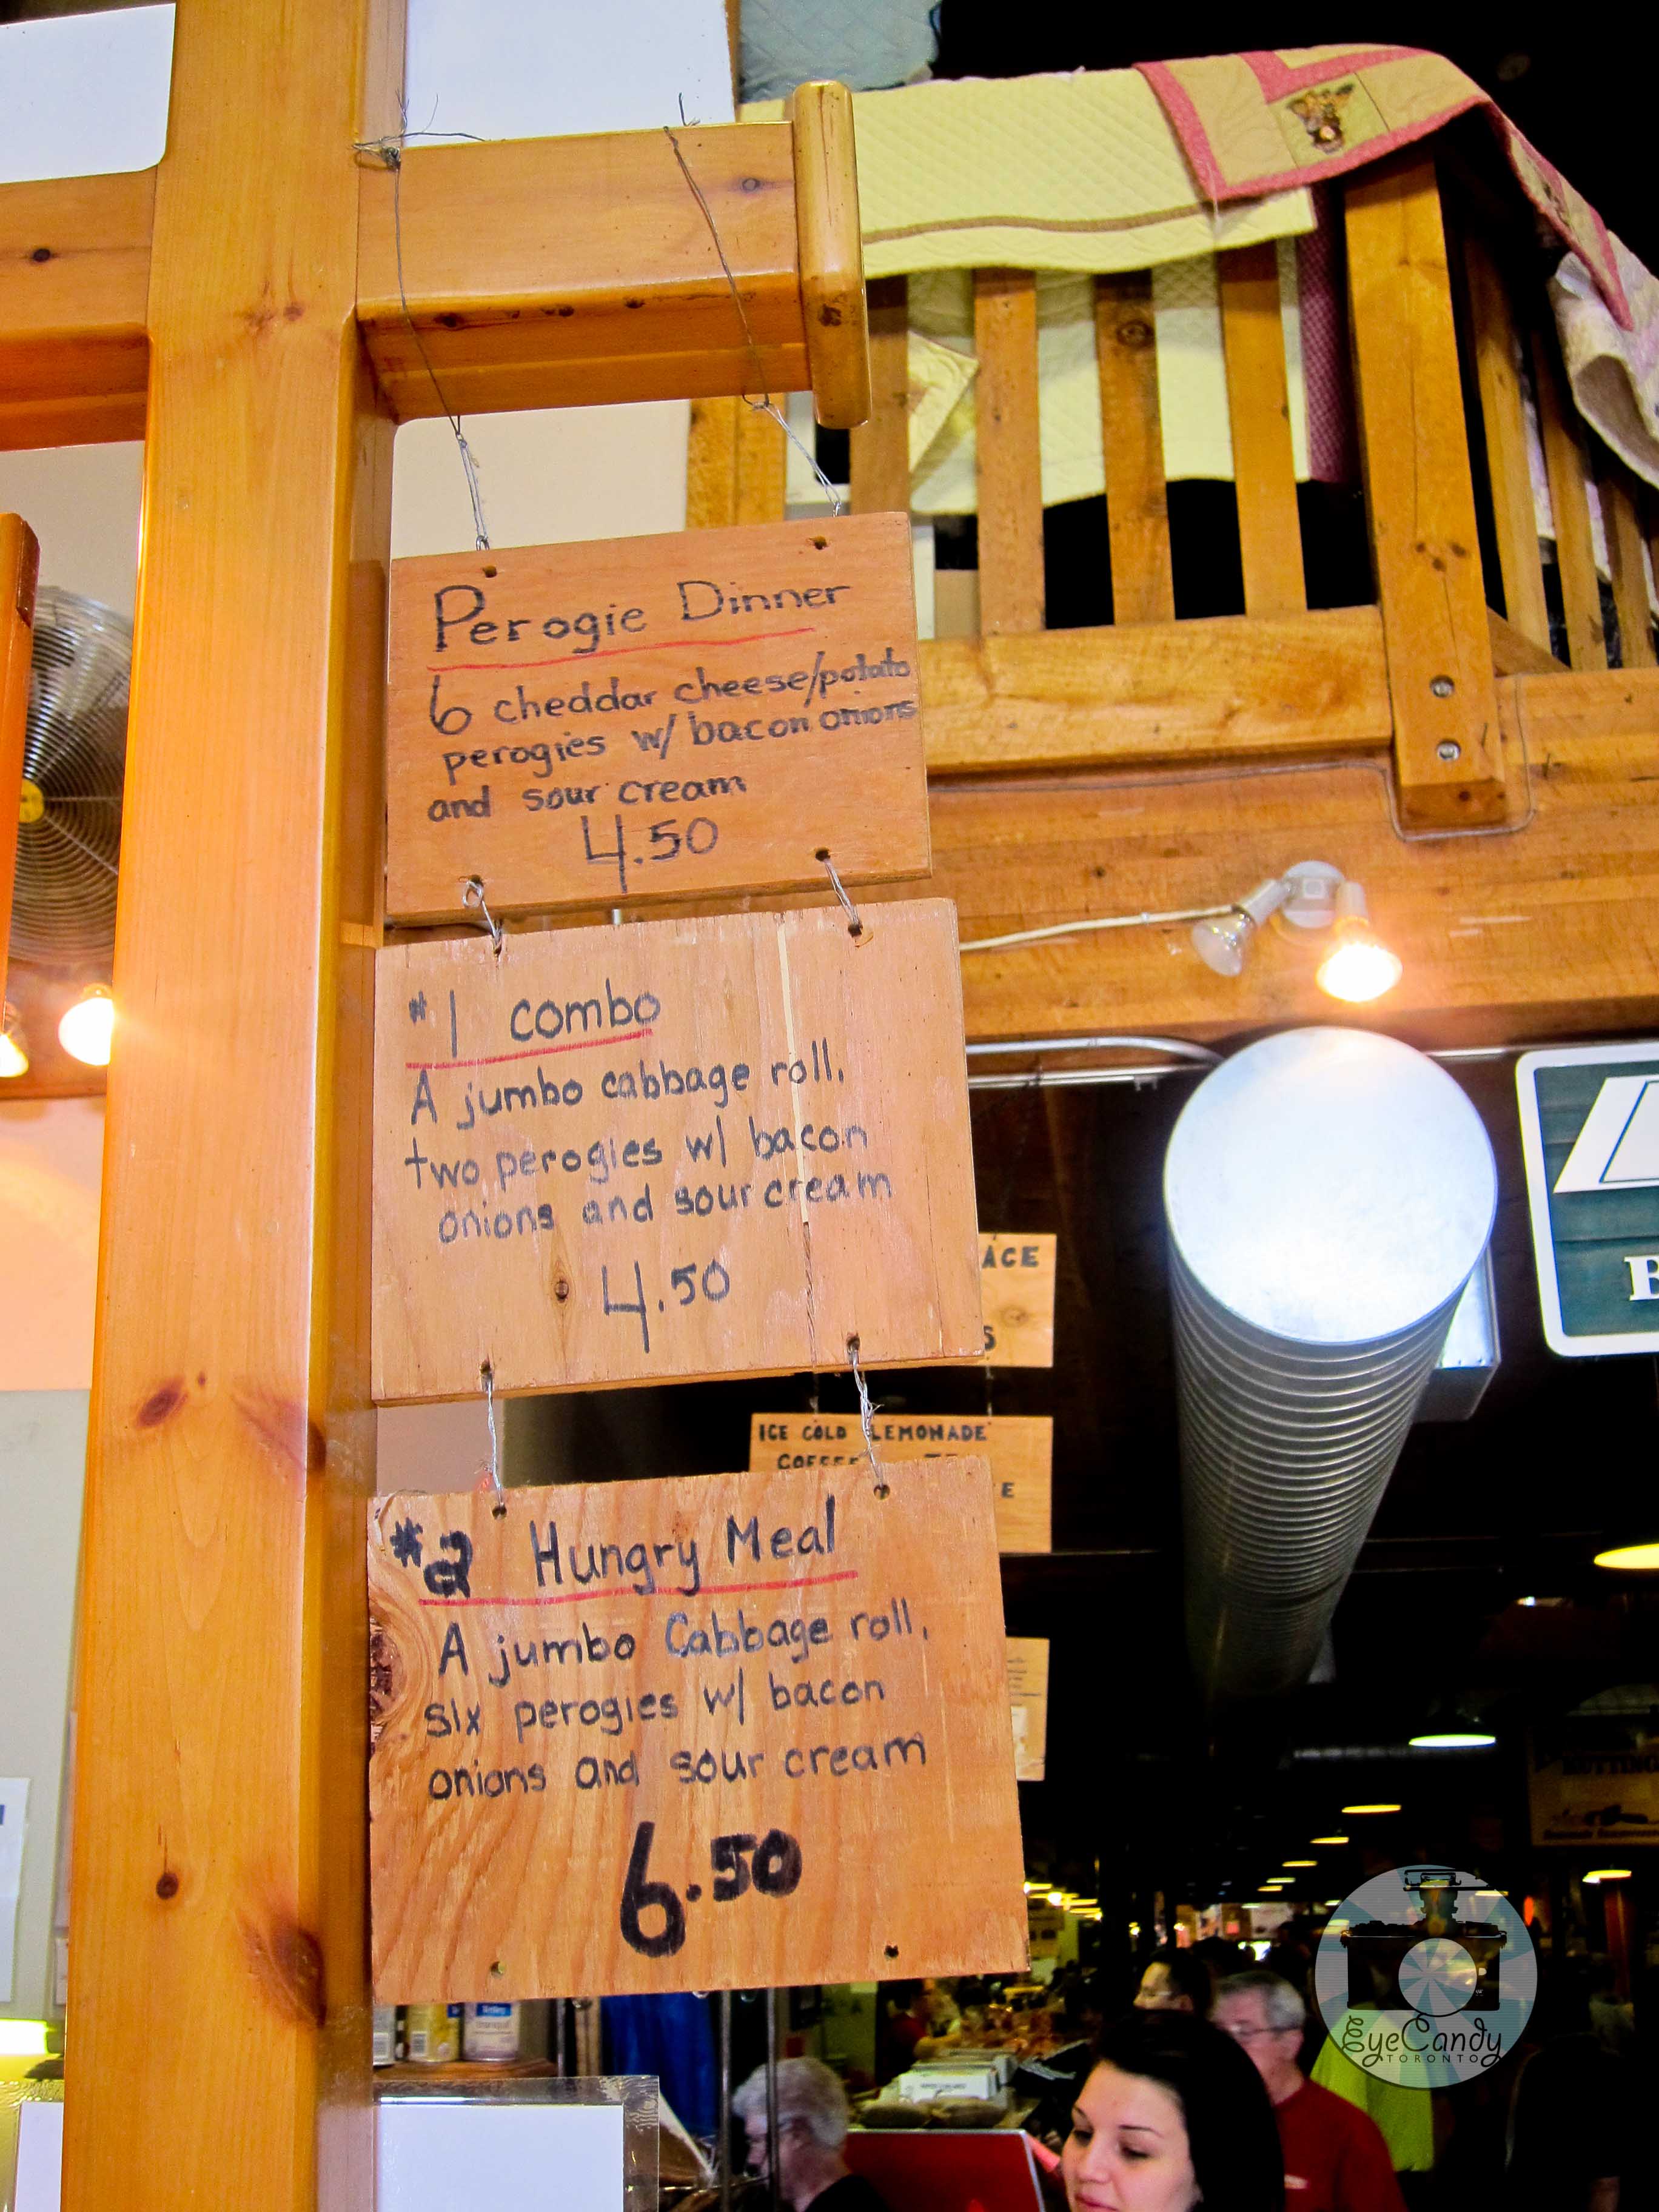 Perogie Dinner
6 cheddar cheese/potato
perogies w/ bacon onions
and sour cream
4.50
#1 combo
A jumbo cabbage roll,
two perogies w/ bacon
onions and sour cream
4.50
ICE COLD LEMONADE
#2 Hungry Meal
A jumbo Cabbage roll,
six perogies w/ bacon
onions and sour cream
6.50
EyeCandy
TORONTO